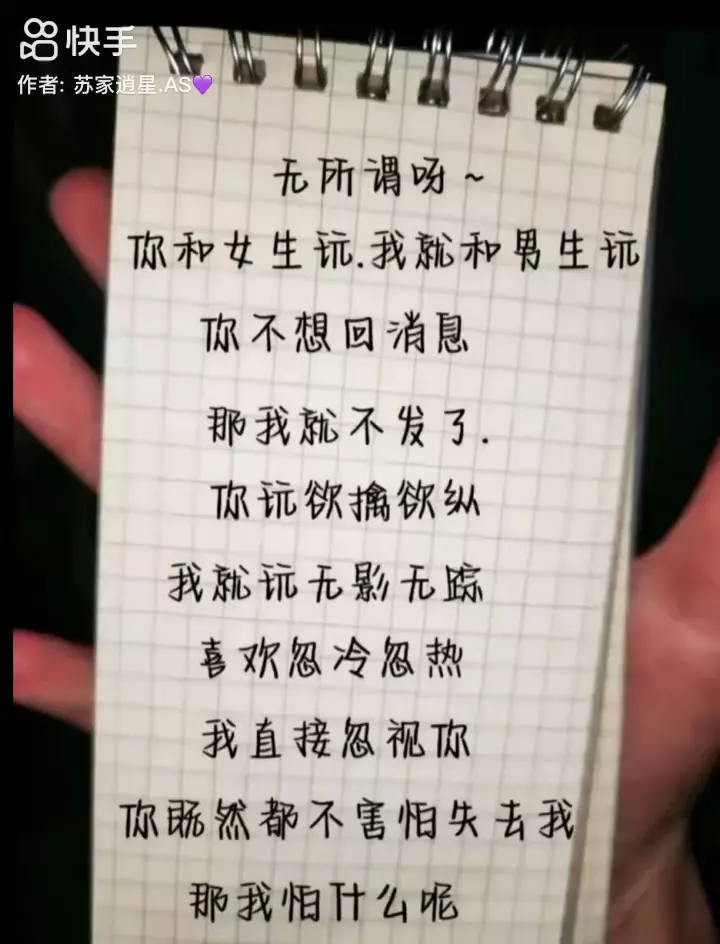 快手
作者: 苏家逍星.AS💜
无所谓呀~
你和女生玩.我就和男生玩
你不想回消息
那我就不发了.
你玩欲擒欲纵
我就玩无影无踪
喜欢忽冷忽热
我直接忽视你
你既然都不害怕失去我
那我怕什么呢